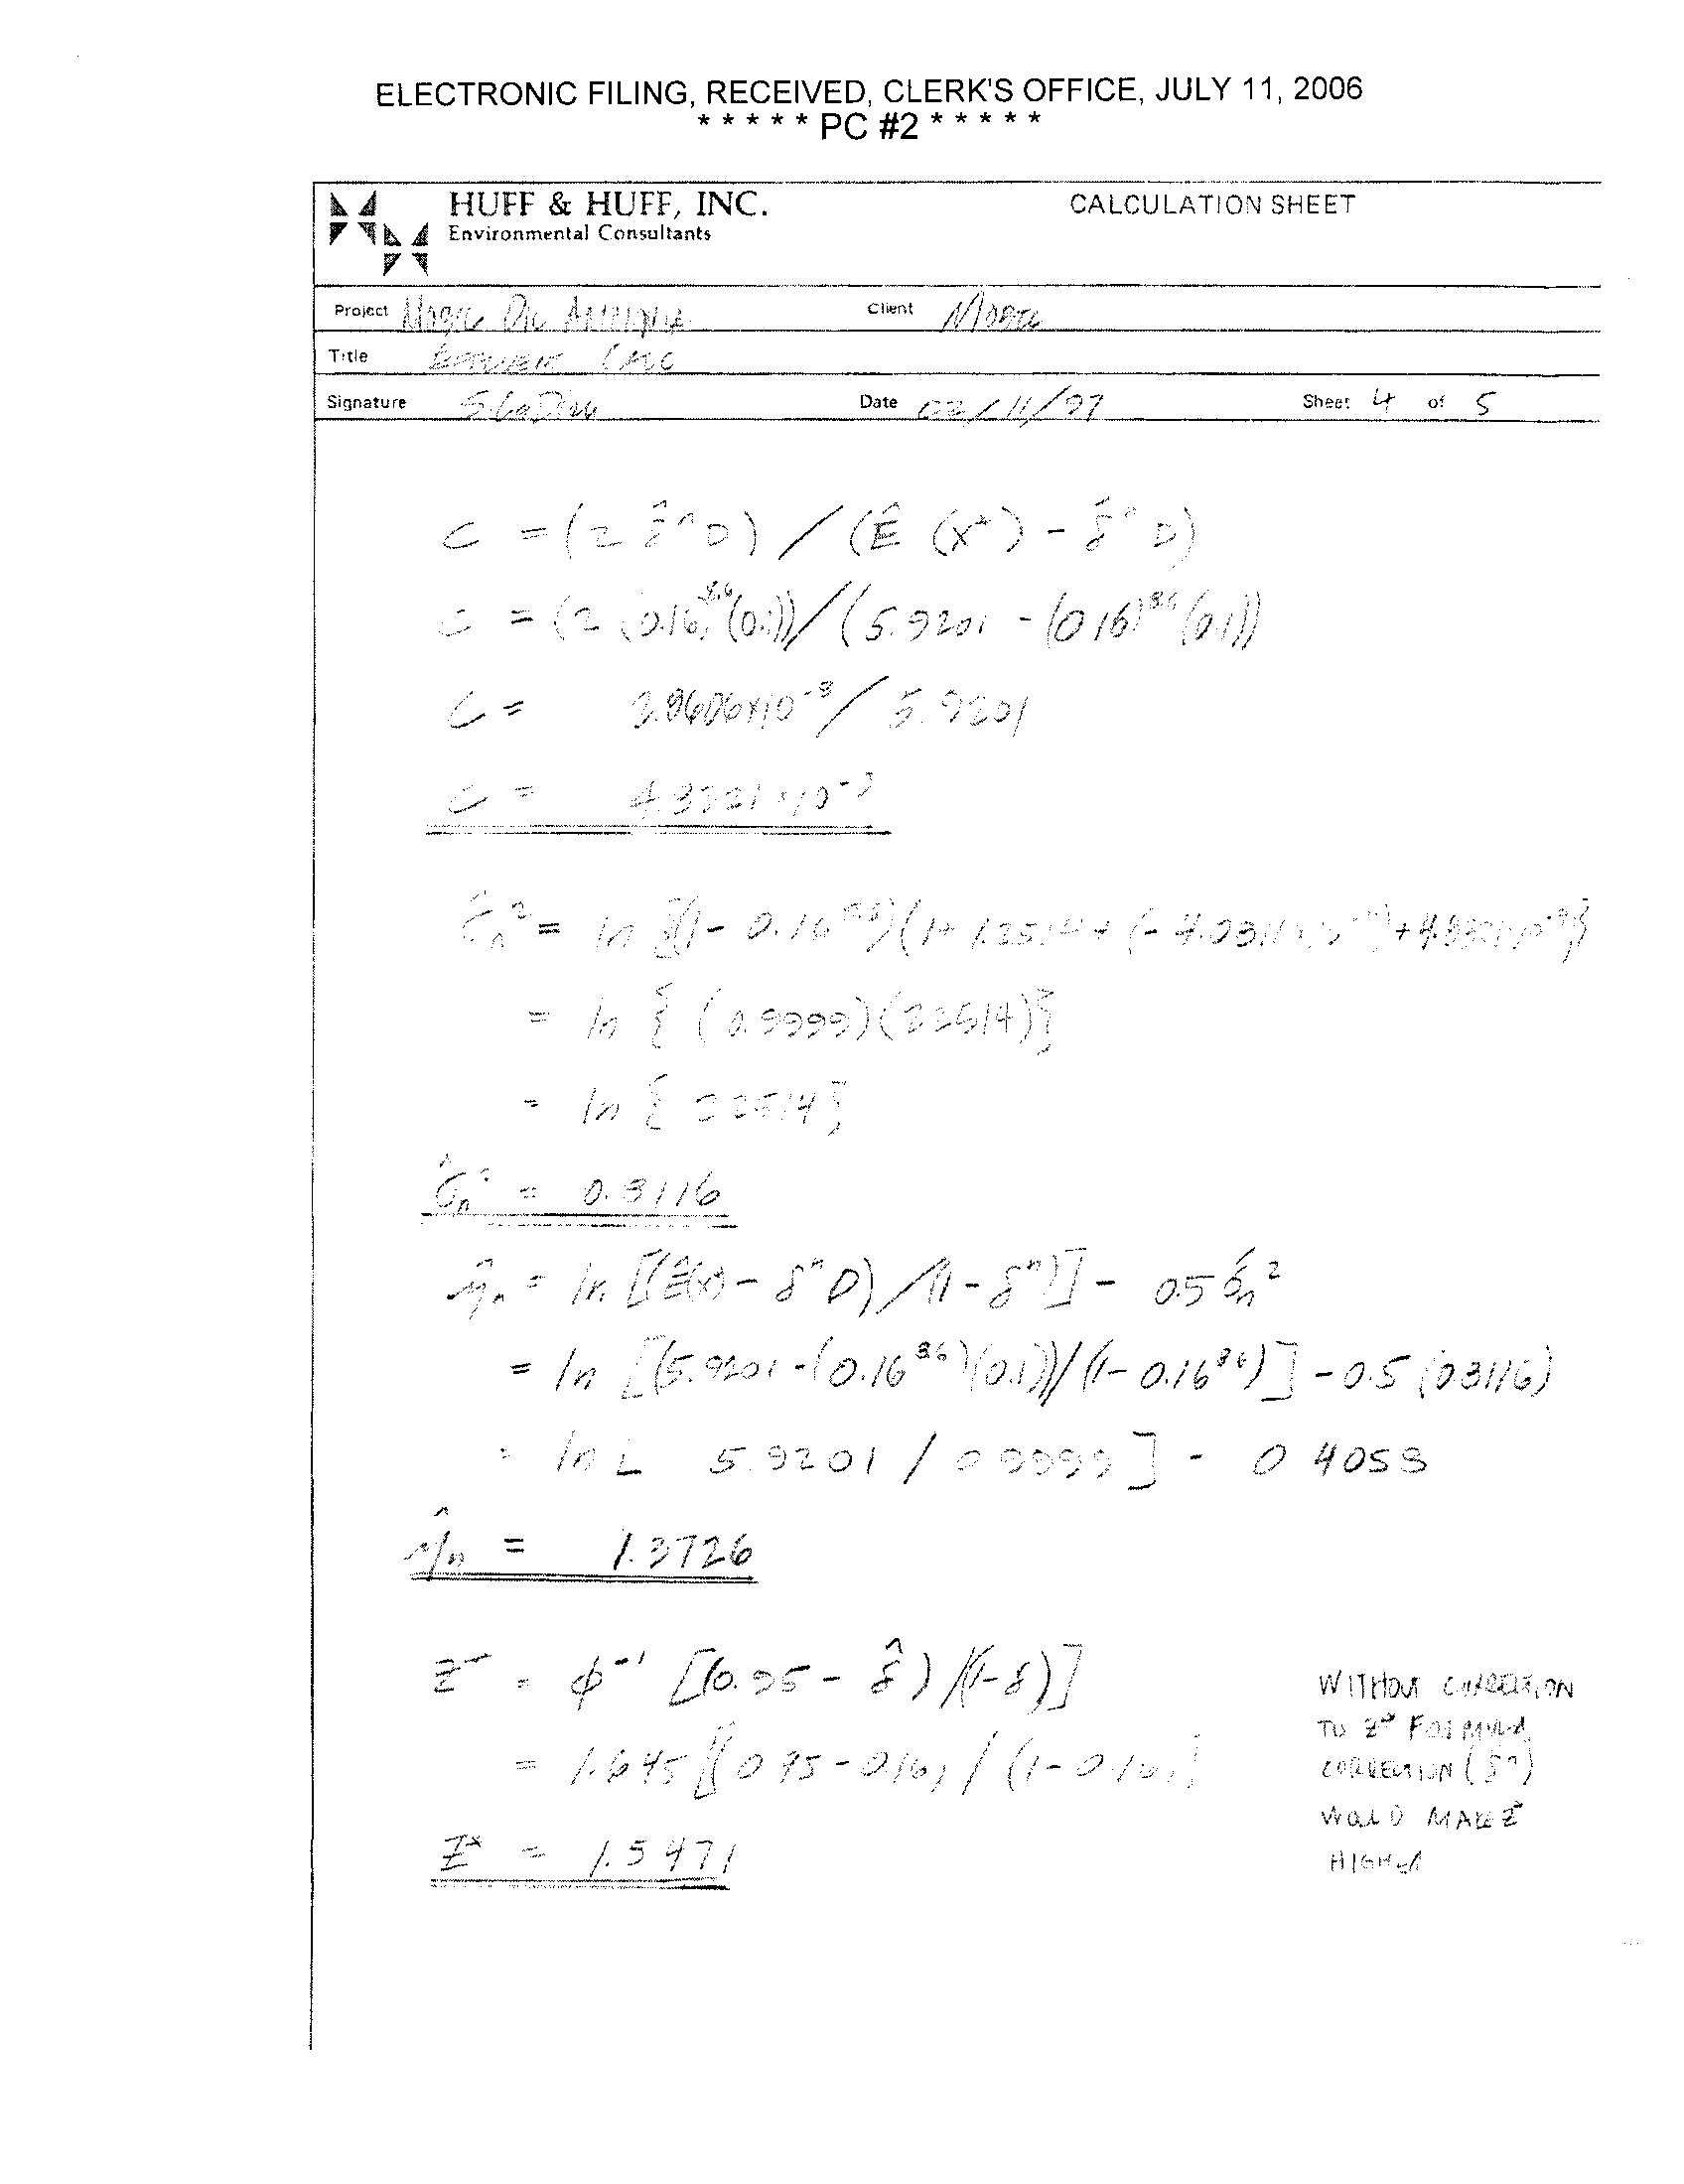 ELECTRONIC FILING, RECEIVED, CLERK'S OFFICE, JULY 11, 2006
* * * * * PC #2 * * * * *
HUFF & HUFF, INC.
Environmental Consultants
CALCULATION SHEET
Project Client
Title
Signature Date 02/11/97 Sheet 4 of 5
C = (2 δ̂ⁿD) / (Ê (X*) - δ̂ⁿ D)
C = (2 (0.16)^8.6 (0.1)) / (5.9201 - (0.16)^8.6 (0.1))
C = / 5.9201
C =
σ̂n² = ln
= ln { (0.9999)(2.2514)}
= ln { 2.2514}
σ̂n² = 0.8116
η̂n = ln [(Ê(x) - δⁿD) / (1-δⁿ)] - 0.5 σ̂n²
= ln [(5.9201-(0.16^8.6)(0.1))/(1-0.16^8.6)] - 0.5 (0.8116)
= ln [ 5.9201 / 0.9999 ] - 0.4058
η̂n = 1.3726
Z* = ϕ⁻¹ [(0.95 - δ̂) /(1-δ)]
= 1.645 [(0.95-0.16) / (1-0.16)]
Z* = 1.5471
WITHOUT CORRECTION
TO Z* FORMULA
CORRECTION (δⁿ)
WOULD MAKE Z*
HIGHER